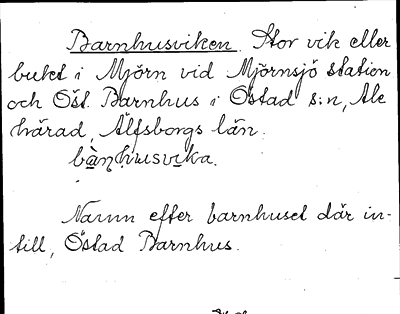 Barnhusviken. Stor vik eller
bukt i Mjörn vid Mjörnsjö station
och Öst. Barnhus i Östad s:n, Ale
härad, Älfsborgs län.
bàṇhusvi̱ka.
Namn efter barnhuset där in-
till, Östad Barnhus.